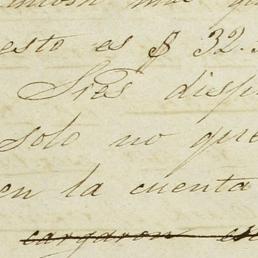 esto es $ 32.
Sies disp
solo no que
en la cuenta
cargaron en